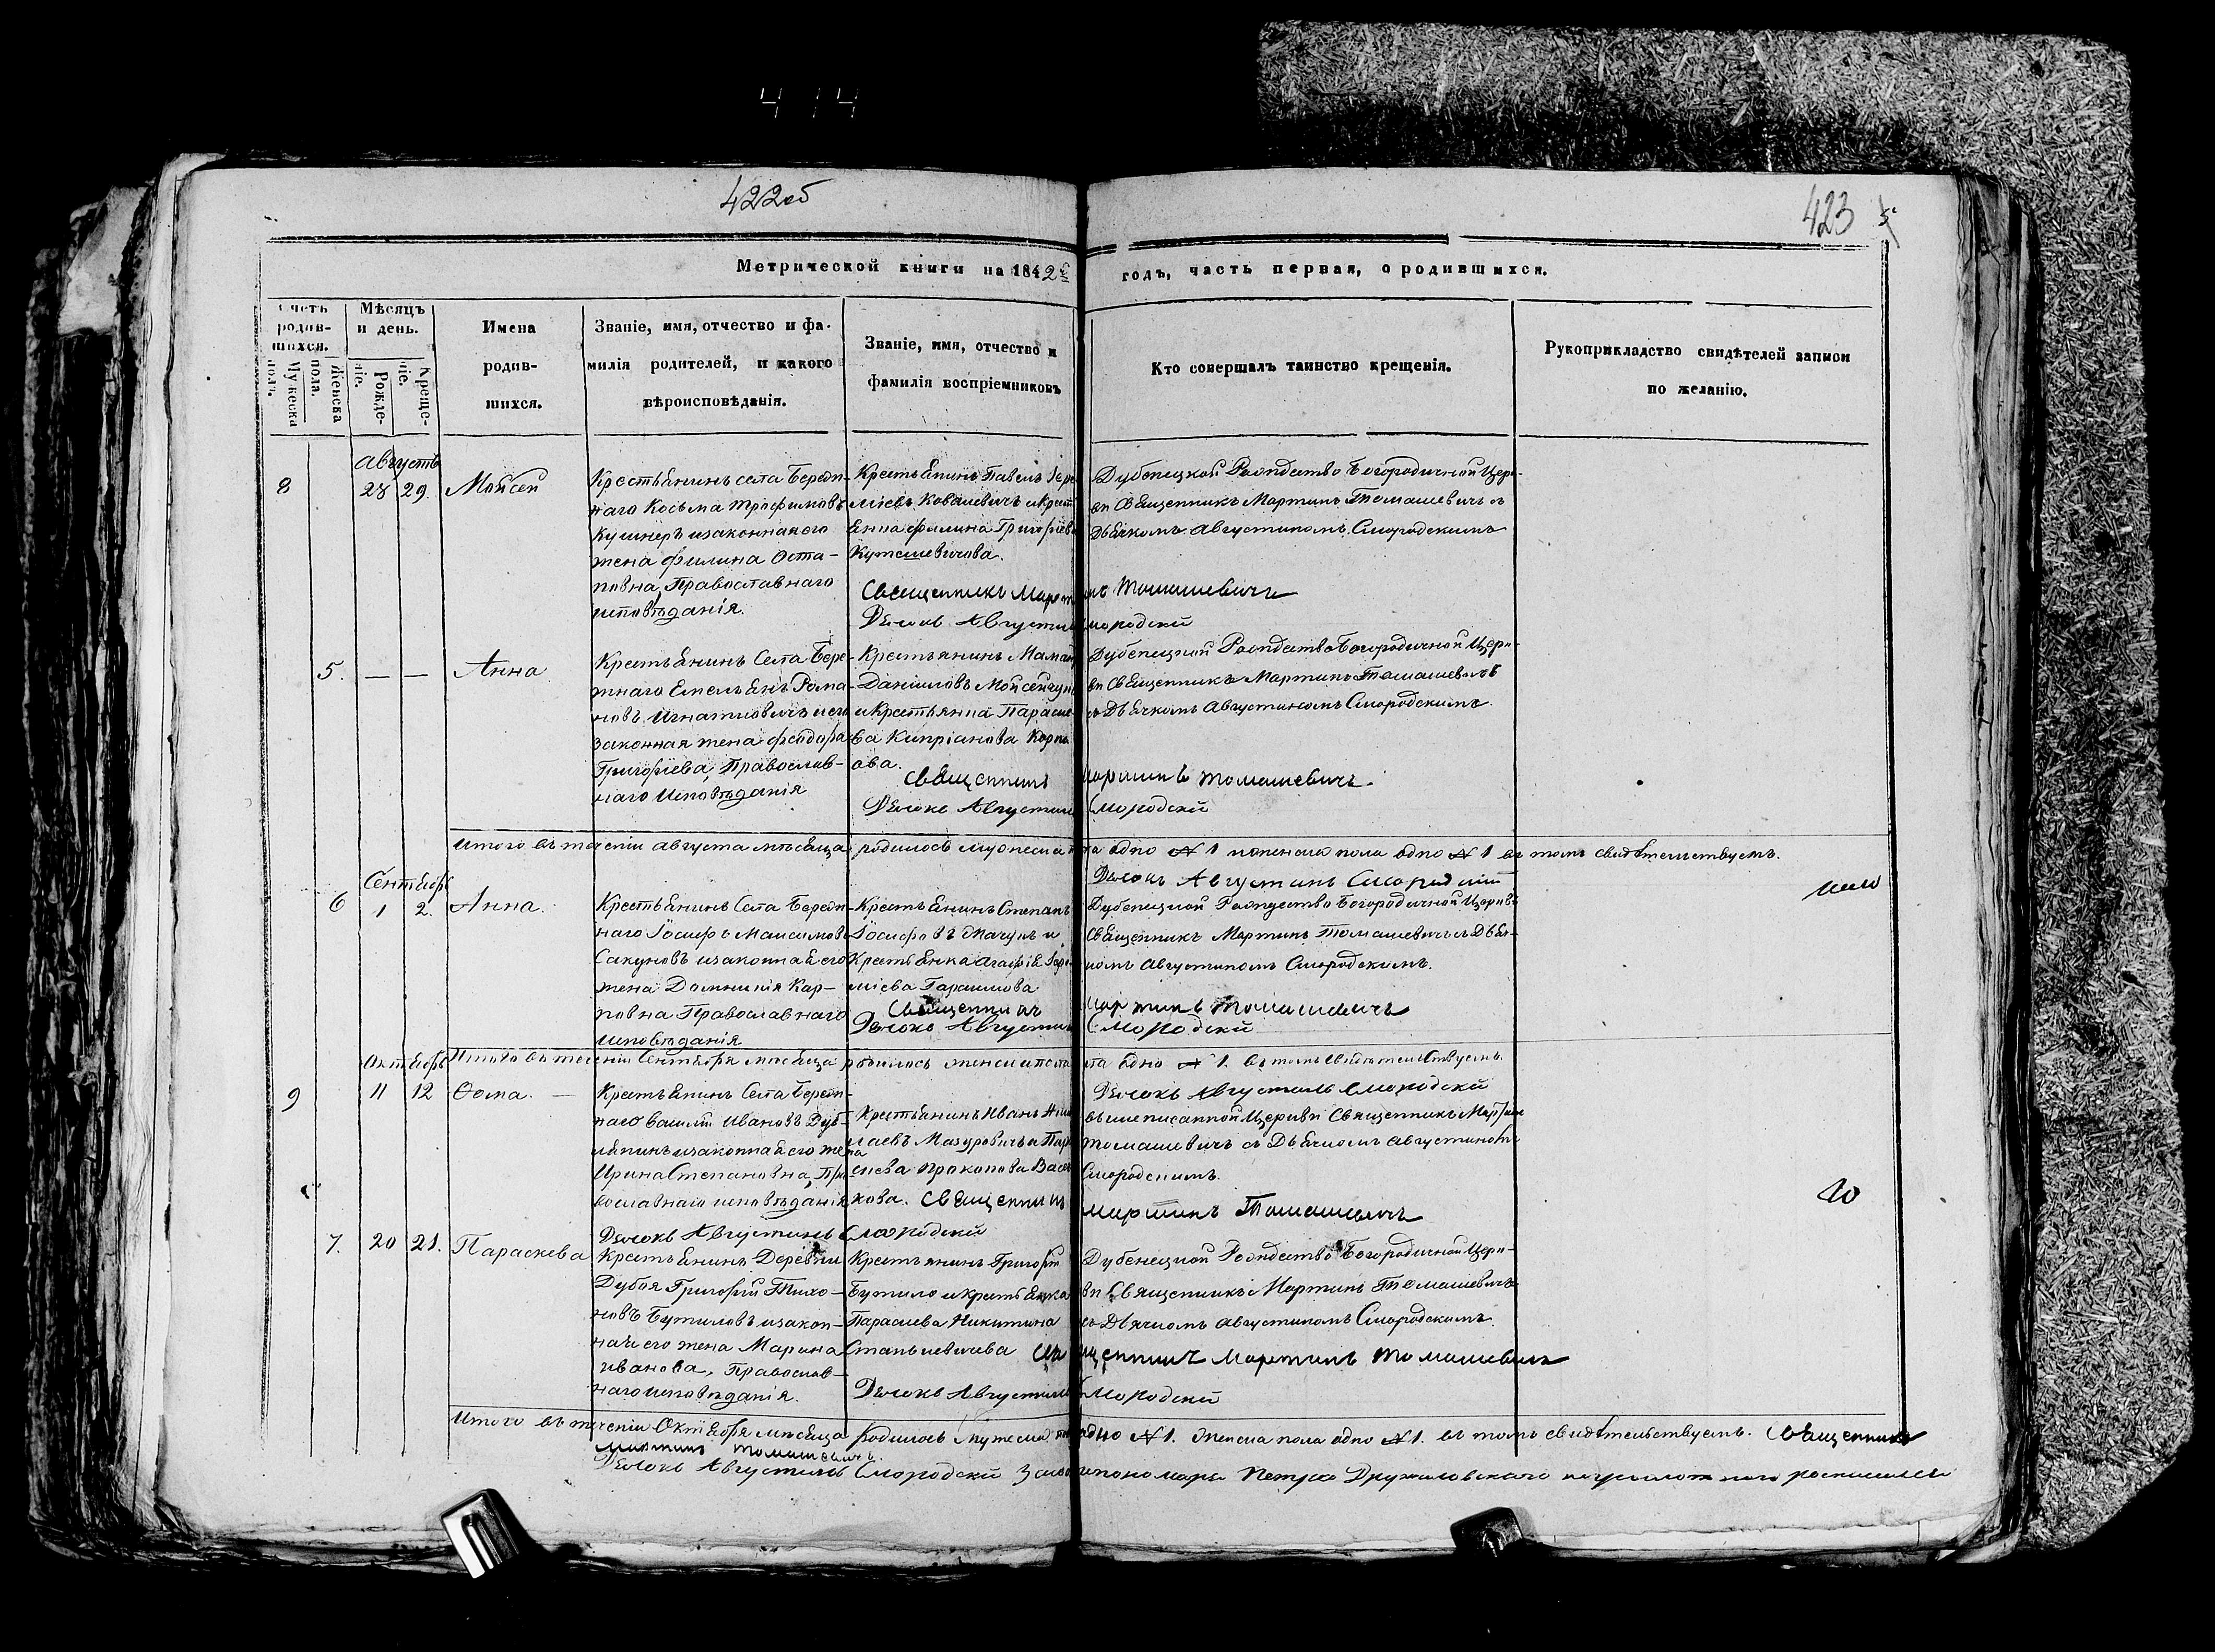 414
422об
423
Метрической книги на 1842й
годъ, часть первая, о родившихся.
Счетъ родив-шихся.
Мужеска пола.
Женска пола.
Мѣсяцъ и день.
Рожде-ніе.
Креще-ніе.
Имена родив-шихся.
Званіе, имя, отчество и фа-
милія родителей, и какого
вѣроисповѣданія.
Званіе, имя, отчество и
фамилія воспріемниковъ
Кто совершалъ таинство крещенія.
Рукоприкладство свидѣтелей записи
по желанію.
Августъ
8
28 29.
Мойсей
Крестьянинъ села Береж-
наго Косьма Трофимовъ
Кушнеръ изаконная его
жена филина Оста-
повна, Православнаго
исповѣданія.
Крестьянинъ Павелъ Іере
міевъ Ковалевичъ икрест
янка филина Григоріева
Кутешевичова.
Дубенецкой Рождество Богородичной Церк-
ви Священникъ Мартинъ Томашевичъ съ
Дьячкомъ Августиномъ Смородскимъ
Священникъ Мартинъ Томашевичъ
Дьячокъ Августинъ Смородскій
5.
— —
Анна
Крестьянинъ Села Бере-
жнаго Емельянъ Рома-
новъ Игнатовичъ иего
законная жена феодора
Григоріева, Православ-
наго Исповѣданія
Крестьянинъ
Даніиловъ
икрестьянка Параске
ва Кипріанова
ова.
Дубенецкой Рождество Богородичной Церк-
ви Священникъ Мартинъ Томашевичъ
съ Дьячкомъ Августиномъ Смородскимъ.
Священникъ Мартинъ Томашевичъ.
Дьячокъ Августинъ Смородскій
Итого въ теченіи августа мѣсяца родилось мужеска пола одно № 1 иженска пола одно № 1 въ томъ свидѣтельствуемъ.
Дьячокъ Августинъ Смородскій
Сентябрь
6
1 2.
Анна.
Крестьянинъ Села Береж-
наго Іосифъ Максимовъ
Сакуновъ изаконная его
жена Домникія Кар-
повна Православнаго
исповѣданія
Крестьянинъ Степанъ
Іосифовъ и
Крестьянка Агафія Іере
міева Гарасимова
Дубенецкой Рождество Богородичной Церкви
Священникъ Мартинъ Томашевичъ съ Дьяч-
комъ Августиномъ Смородскимъ.
Священникъ Мартинъ Томашевичъ
Дьячокъ Августинъ Смородскій
Итого въ теченіи Сентября мѣсяца родилось женска пола одно № 1. въ томъ свидѣтельствуемъ.
Дьячокъ Августинъ Смородскій
Октябрь
9
11 12
Ѳома. —
Крестьянинъ Села Береж-
наго Василій Ивановъ Дуб-
изаконная его жена
Ирина Степановна, Пра
вославнаго исповѣданія
Крестьянинъ Иванъ Нико
лаевъ Мазуровичъ и Пара
скева Прокопова
кова.
вышеписанной Церкви Священникъ Мартинъ
Томашевичъ съ Дьячкомъ Августиномъ
Смородскимъ.
Священникъ Мартинъ Томашевичъ
Дьячокъ Августинъ Смородскій
7.
20 21.
Параскева
Крестьянинъ Деревни
Дубоя Григорій Тихо-
новъ Бутиловъ изакон-
ная его жена Марина
Иванова, Православ-
наго исповѣданія.
Крестьянинъ Григорій
Бутило икрестьянка
Параскева Никитина
Станкевичева
Дубенецкой Рождество Богородичной Церк-
ви Священникъ Мартинъ Томашевичъ
съ Дьячкомъ Августиномъ Смородскимъ.
Священникъ Мартинъ Томашевичъ
Дьячокъ Августинъ Смородскій
Итого въ теченіи Октября мѣсяца родилось мужеска пола одно № 1. женска пола одно № 1. въ томъ свидѣтельствуемъ. Священникъ
Мартинъ Томашевичъ.
Дьячокъ Августинъ Смородскій пономаря Петра Дружиловскаго